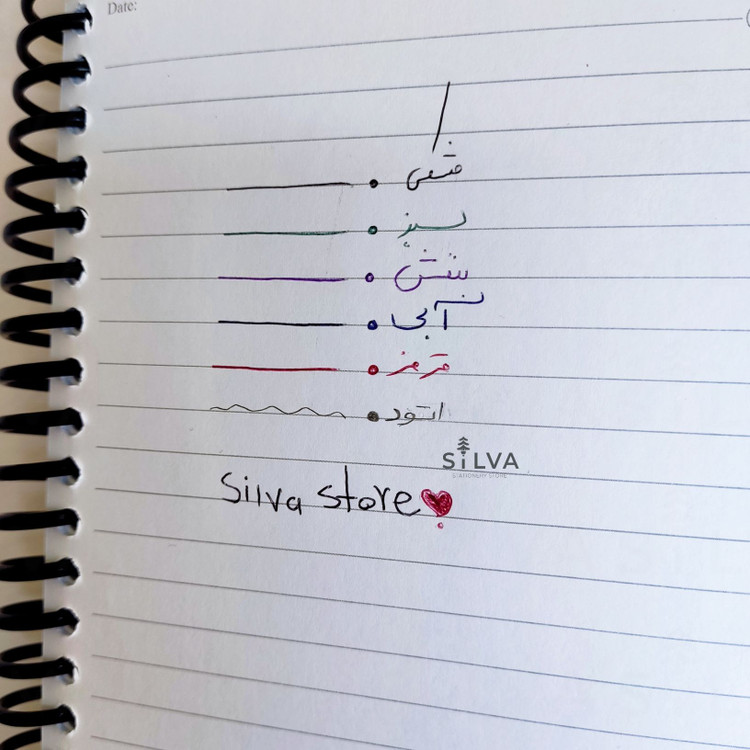 Date:
مشکی
سبز
بنفش
آبی
قرمز
اتود
SiLVA
STATIONERY STORE
Silva store